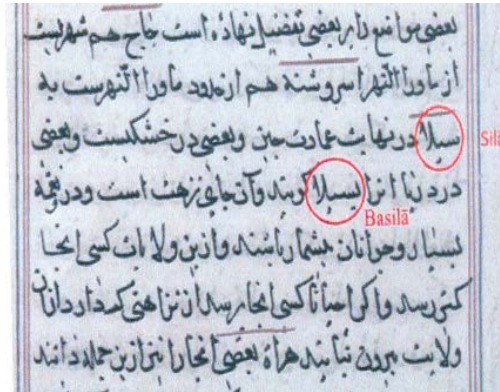 بعضی مواضع را بر بعضی تفضیل نهاده است جاج هم شهریست
از ماورا النهر اسروشنه هم از حدود ماورا النهرست به
سیلا در نهایت عمارت چین و بعضی در خشکیست و بعضی
Silā
در دریا انرا بسیلا کویند وآن جای نزهت است ودر
Basilā
بسیار وحوانان بیشمار باشند وازین ولایات کسی انجا
کمتر رسد واکر احیانا کسی انجا رسد از نزاهتی که دارد ازان
ولایت بیرون نیاید هراة بعضی انجا را نیز ازین جمله دانند